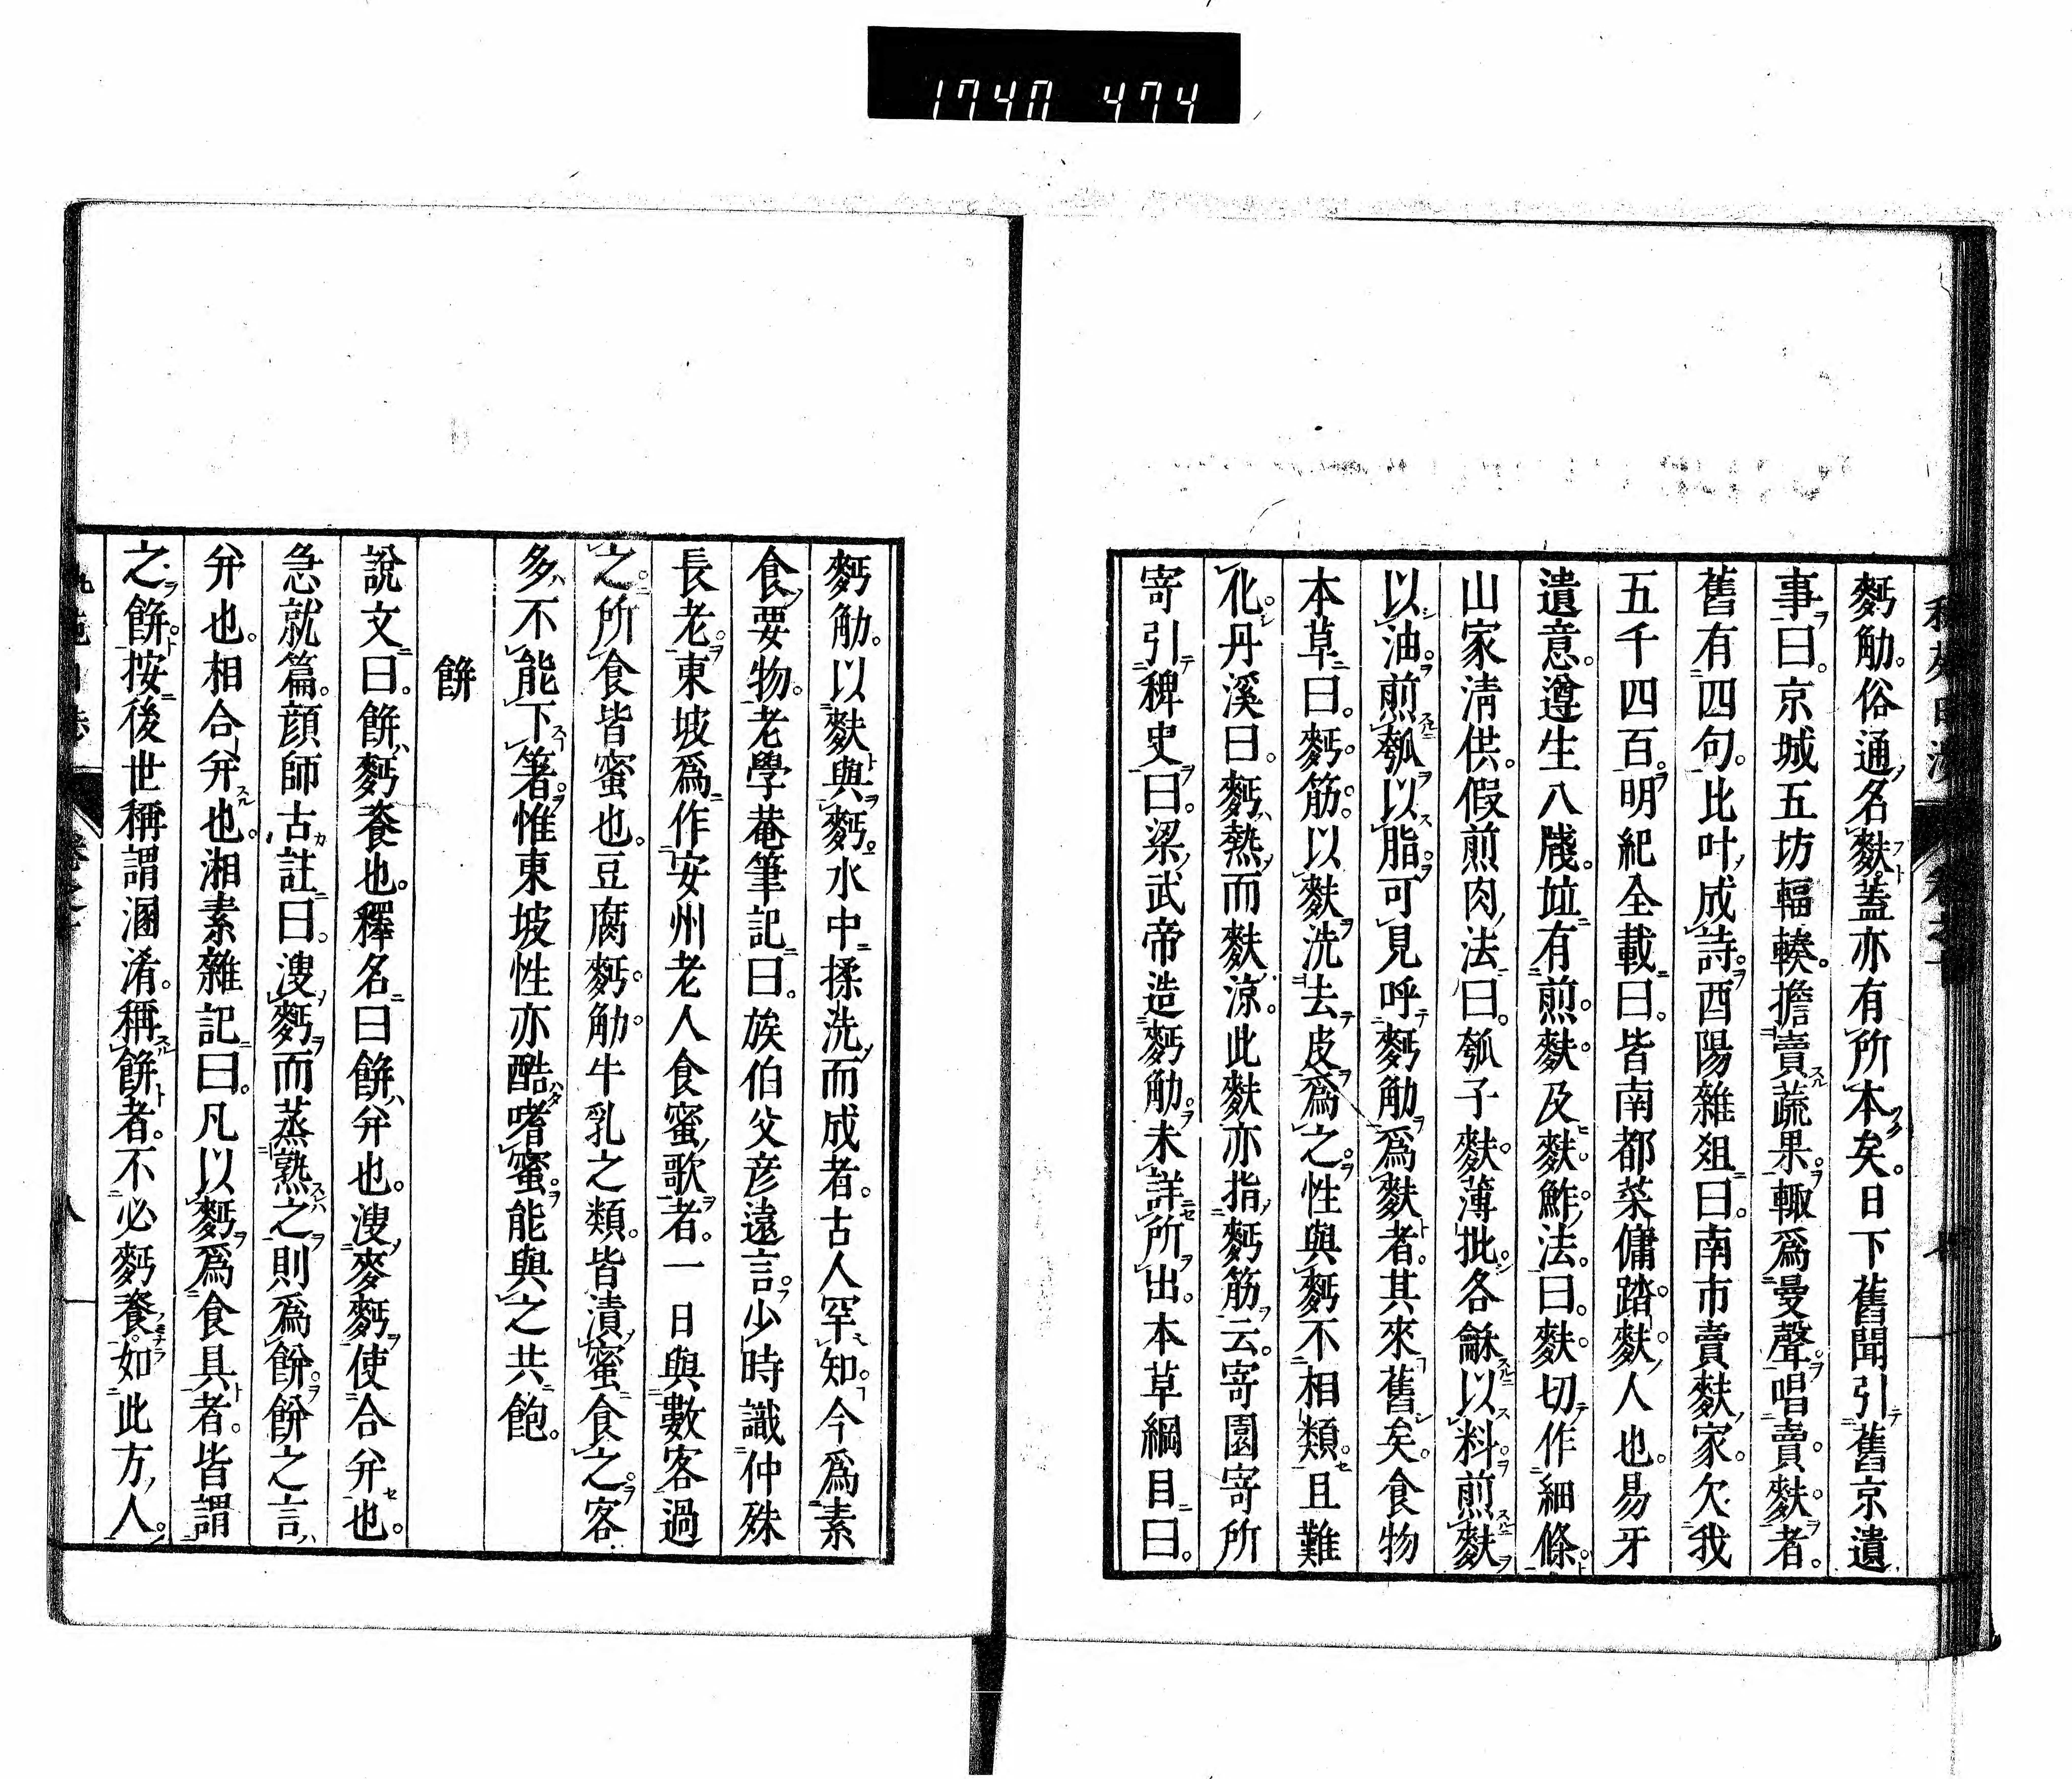 1740 474
麪觔。俗通名麩。蓋亦有所本矣。日下舊聞引舊京遺
事曰。京城五坊輻輳。擔賣蔬果。輙爲曼聲。唱賣麩者。
舊有四句。比叶成詩。酉陽雜俎曰。南市賣麩家。欠我
五千四百。明紀全載曰。皆南都菜傭踏麩人也。易牙
遺意。遵生八牋。竝有煎麩及麩鮓法。曰。麩切作細條。
山家淸供。假煎肉法曰。瓠子麩薄批。各龢以料。煎麩
以油。煎瓠以脂。可見呼麪觔爲麩者。其來舊矣。食物
本草曰。麪筋。以麩洗去皮爲之。性與麪不相類。且難
化。丹溪曰。麪熱而麩涼。此麩亦指麪筋云。寄園寄所
寄引稗史曰。梁武帝造麪觔。未詳所出。本草綱目曰。
麪觔。以麩與麪水中揉洗而成者。古人罕知。今爲素
食要物。老學菴筆記曰。族伯父彦遠言。少時識仲殊
長老。東坡爲作安州老人食蜜歌者。一日與數客過
之。所食皆蜜也。豆腐麪觔。牛乳之類。皆漬蜜食之。客
多不能下箸。惟東坡性亦酷嗜蜜。能與之共飽。
餅
說文曰。餅麪餈也。釋名曰餅幷也。溲麥麪使合幷也。
急就篇。顔師古註曰。溲麪而蒸熟之則爲餅。餅之言
幷也。相合幷也。湘素雜記曰。凡以麪爲食具者。皆謂
之餅。按後世稱謂溷淆。稱餅者。不必麪餈。如此方人。